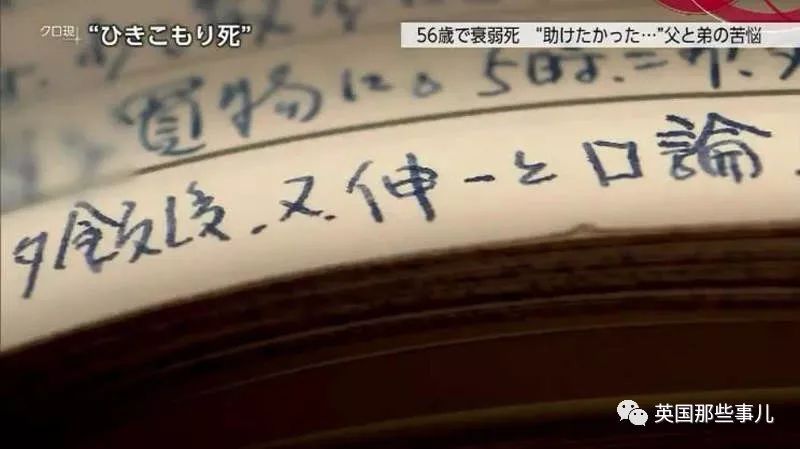 クロ現+
“ひきこもり死”
56歳で衰弱死 “助けたかった…”父と弟の苦悩
買物に。5時.二
夕飯後.又.伸一と口論.
英国那些事儿